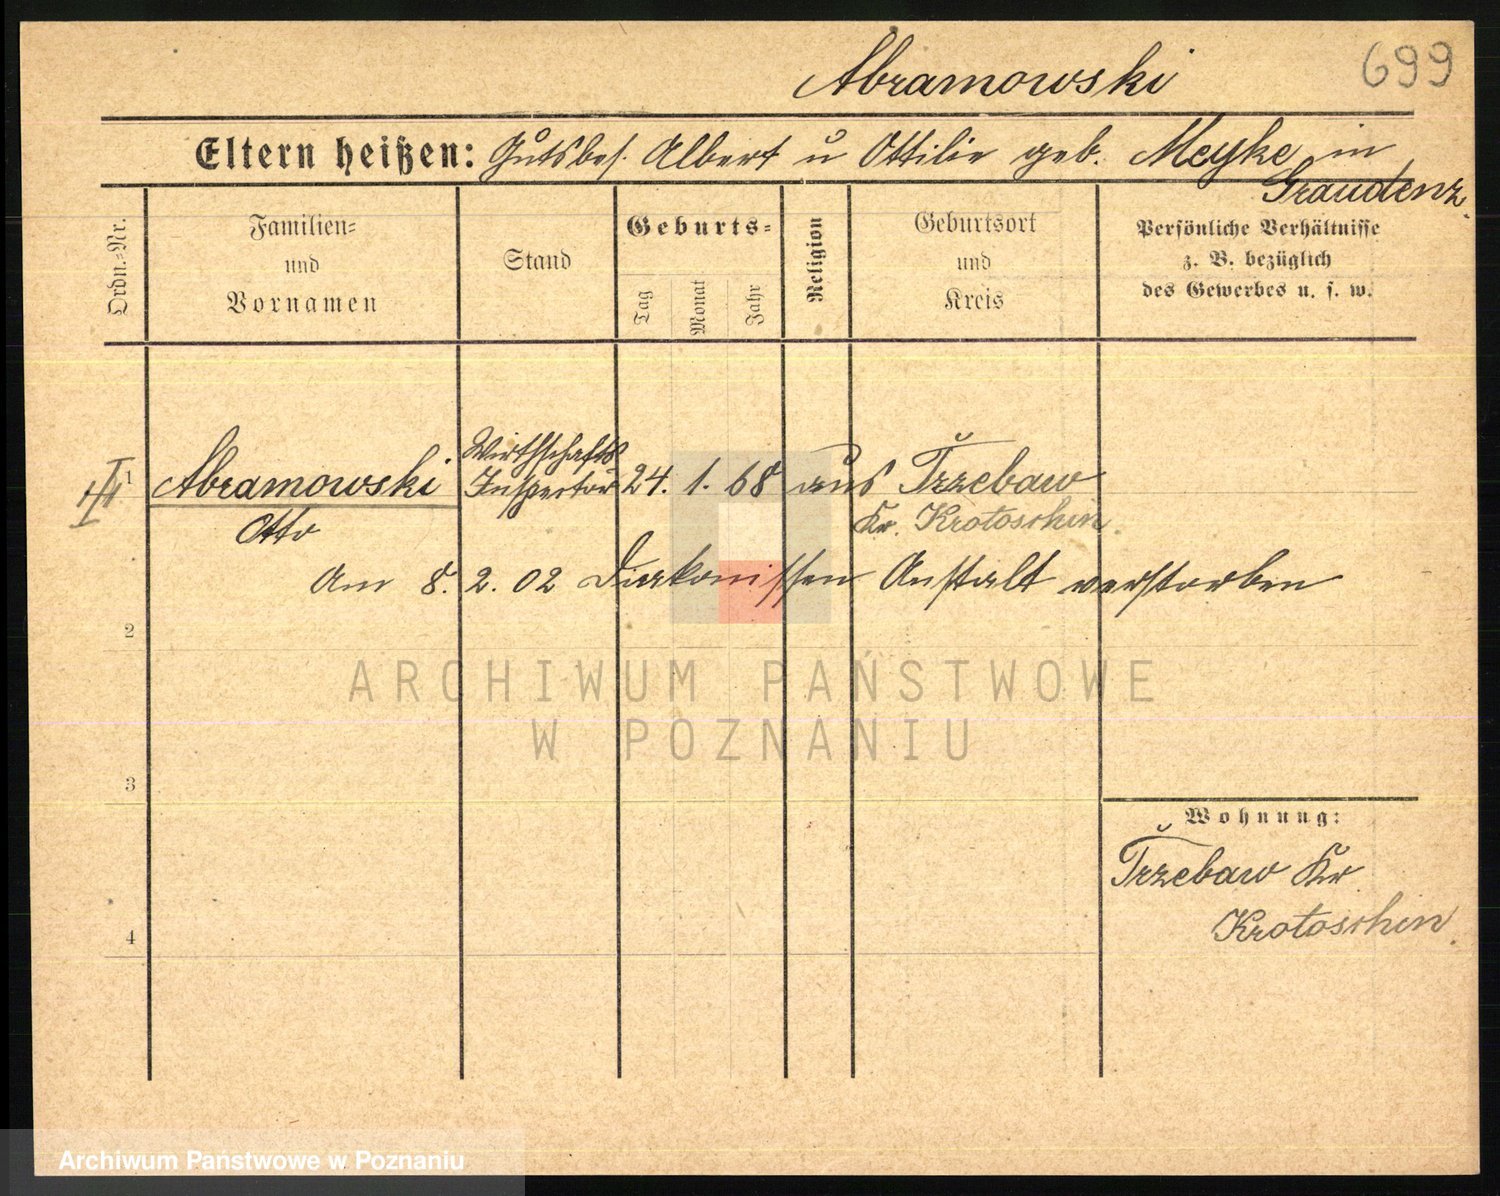 Abramowski
699
Eltern heißen: Gutsbes. Albert u Ottilie geb. Meyke in
Graudenz.
Ordn.-Nr.
Familien-
und
Vornamen
Stand
Geburts-
Tag
Monat
Jahr
Religion
Geburtsort
und
Kreis
Persönliche Verhältnisse
z. B. bezüglich
des Gewerbes u. s. w.
1
Abramowski
Otto
Wirthschafts
Inspector
24. 1. 68
aus Trzebaw
Kr. Krotoschin.
Am 8. 2. 02 Diakonissen Anstalt verstorben
2
3
4
Wohnung:
Trzebaw Kr
Krotoschin.
ARCHIWUM PAŃSTWOWE
W POZNANIU
Archiwum Państwowe w Poznaniu